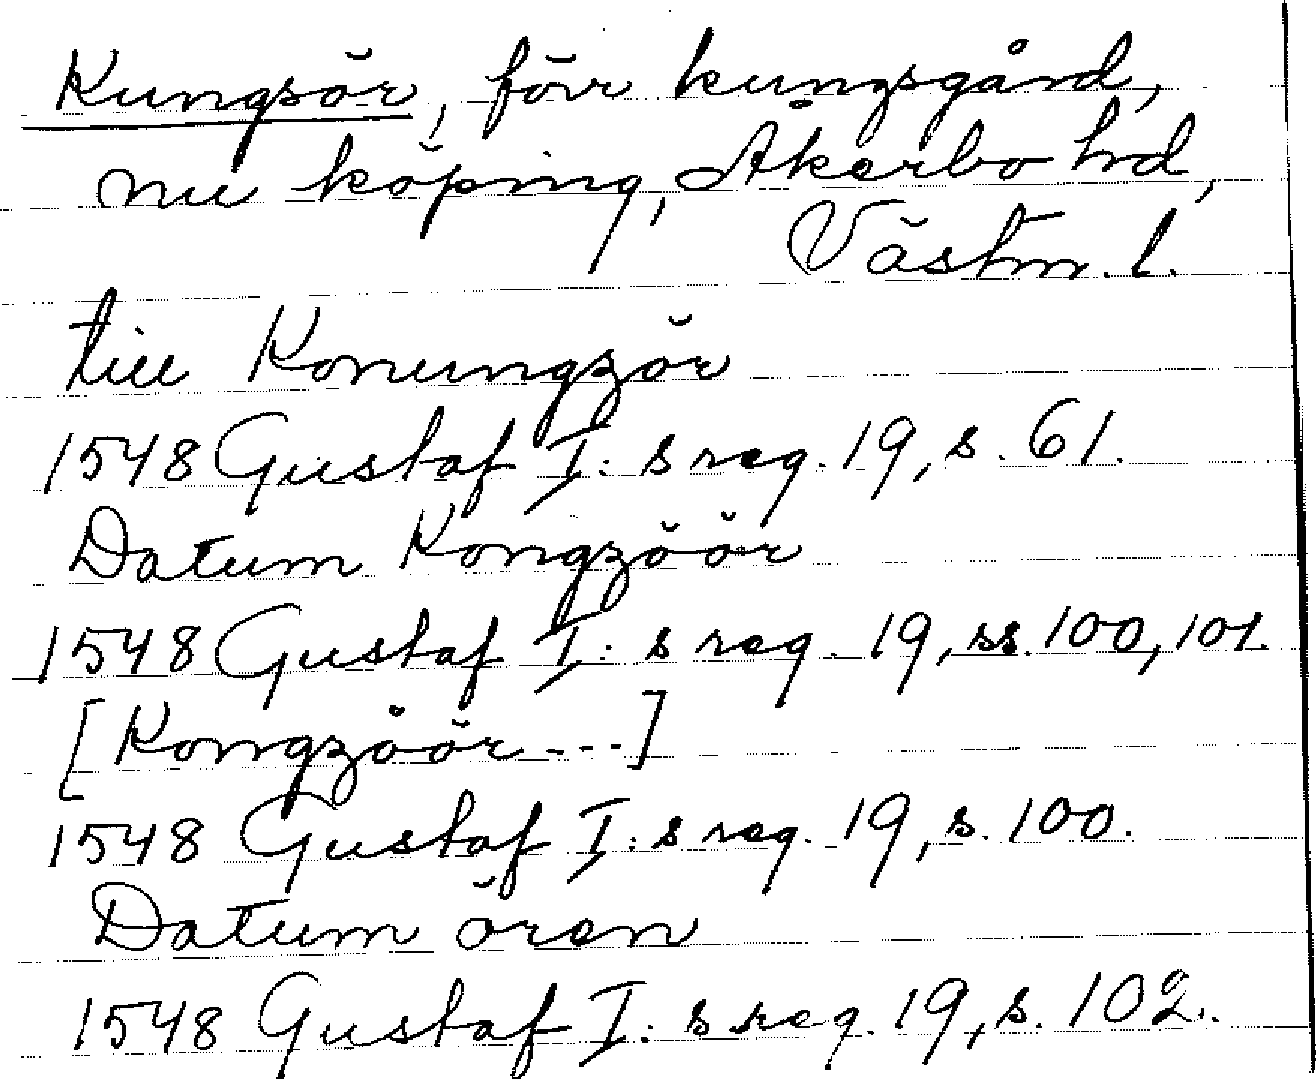 Kungsör, förr kungsgård,
nu köping, Åkerbo hd,
Västm. l.
till Konungzör
1548 Gustaf I:s reg. 19, s. 61.
Datum Kongzöör
1548 Gustaf I:s reg. 19, ss. 100, 101.
[Kongzöör---]
1548 Gustaf I:s reg. 19, s. 100.
Datum ören
1548 Gustaf I:s reg. 19, s. 102.